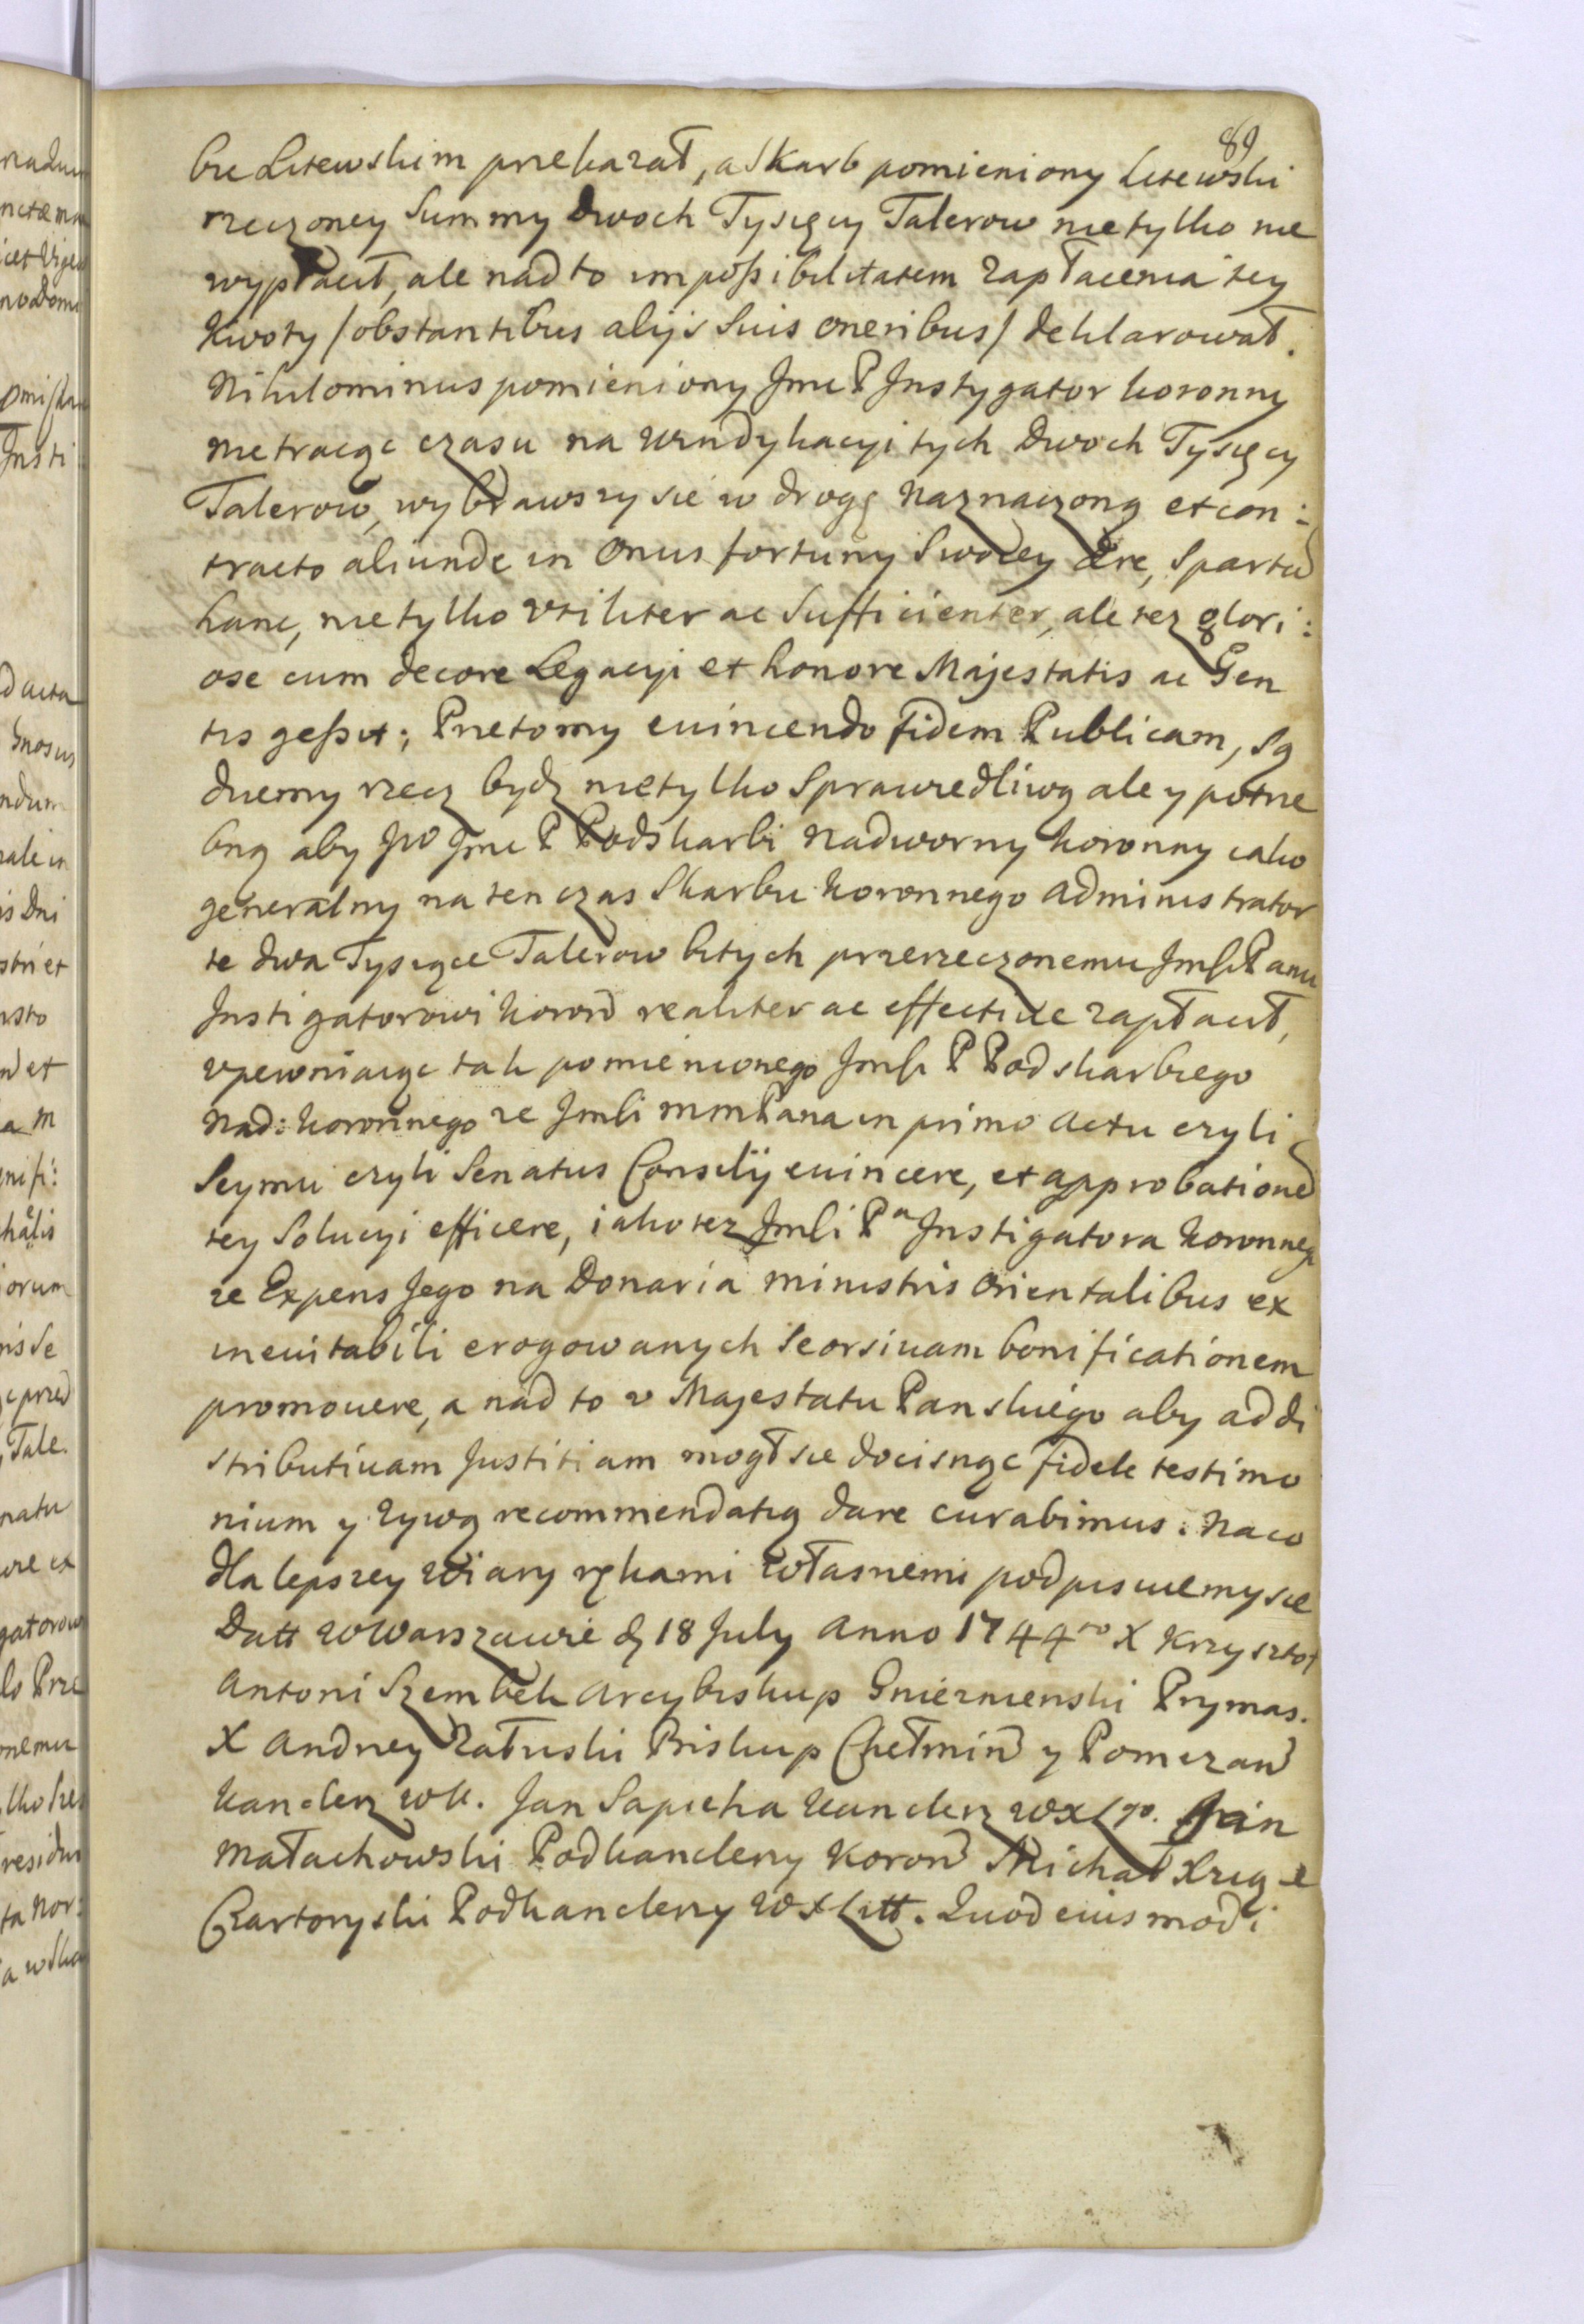 89
bie Litewskim przekazał, a Skarb pomieniony Litewski
rzeczoney Summy dwoch Tysięcy Talerow nietylko nie
wypłacił, ale nadto impossibilitatem zapłacenia tey
Kwoty /obstantibus alijs Suis oneribus/ deklarował.
Nihilominus pomieniony Jmć P Jnstygator koronny
nietracąc czasu na windykacyi tych dwoch Tysięcy
Talerow, wybrawszy sie w drogę naznaczoną et con:
tracto aliunde in Onus fortuny Swoiey ære, Spartam
hanc, nietylko vtiliter ac Sufficienter, ale tez glori:
ose cum decore Legacyi et honore Majestatis ac Gen
tis gessit; Przetomy euincendo fidem Publicam, Są
dziemy rzecz bydz nietylko Sprawiedliwą ale y potrze
bną aby JW Jmć P Podskarbi Nadworny Koronny iako
generalny na ten czas Skarbu Koronnego Administrator
te dwa Tysiące Talerow bitych przerzeczonemu JmśćPanu
Jnstigatorowi Koron realiter ac effective zapłacił,
vpewniaiąc tak pomienionego Jmści P Podskarbiego
Nad: koronnego ze Jmści mmPana in primo Actu czyli
Seymu czyli Senatus Consilij euincere, et approbationem
tey Solucyi efficere, iako tez Jmści Pa Jnstigatora Koronneg
ze Expens Jego na Donaria ministris Orientalibus ex
ineuitabili erogowanych Seorsiuam bonificationem
promouere, a nad to v Majestatu Panskiego aby ad di
stributiuam Justitiam mogł sie docisnąc fidele testimo
nium y zywą recommendatią dare curabimus. Na co
dla lepszey Wiary rękami własnemi podpisuiemy sie
Datt w Warszawie d 18 July Anno 1744to X Krzysztof
Antoni Szembek Arcybiskup Gnieznienski Prymas.
X Andrzey Załuski Biskup Chełmin y Pomezan
Kanclerz WK. Jan Sapieha Kanclerz WXLgo. Jan
Małachowski Podkanclerzy Koron Michał Xiąże
Czartoryski Podkanclerzy WXLitt. Quod eiusmodi